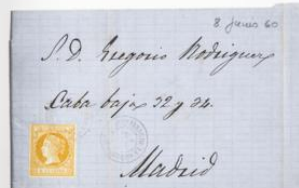 8 Junio 60
S. D. Gregorio Rodriguez
Caba baja 32 y 34.
Madrid